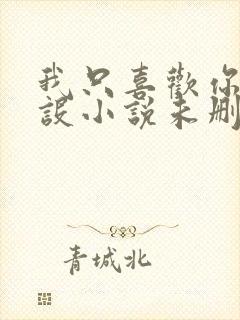 我只喜歡你
設小說未刪
青城北